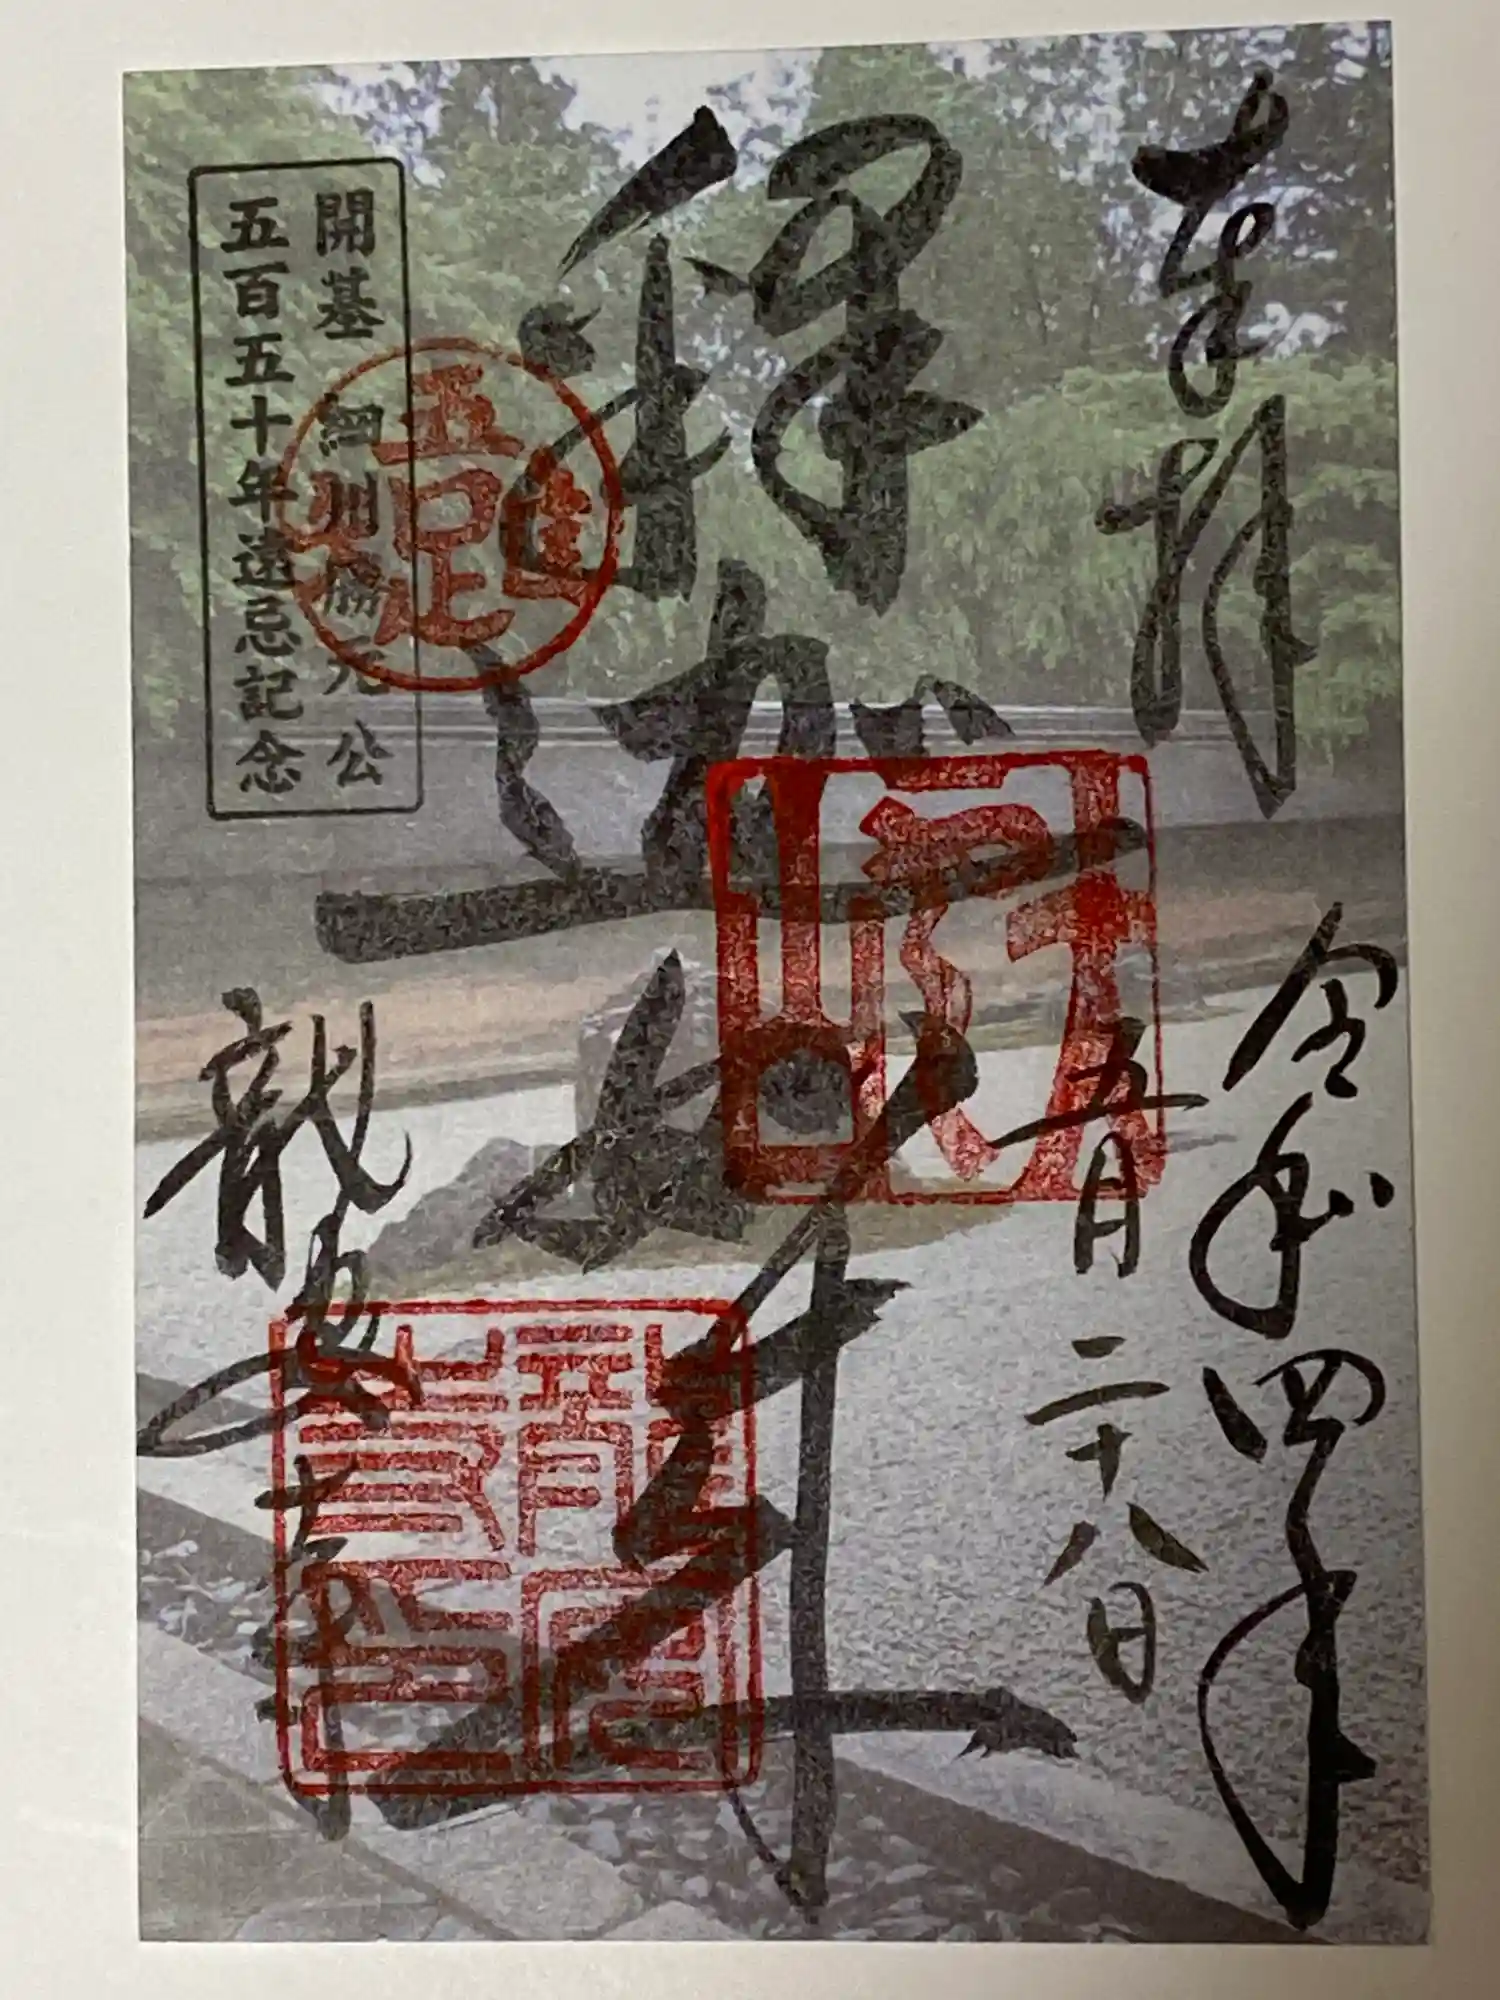 奉拝
令和四年
五月二十八日
釋迦如来
開基 細川勝元公
五百五十年遠忌記念
吾唯足知
龍安寺